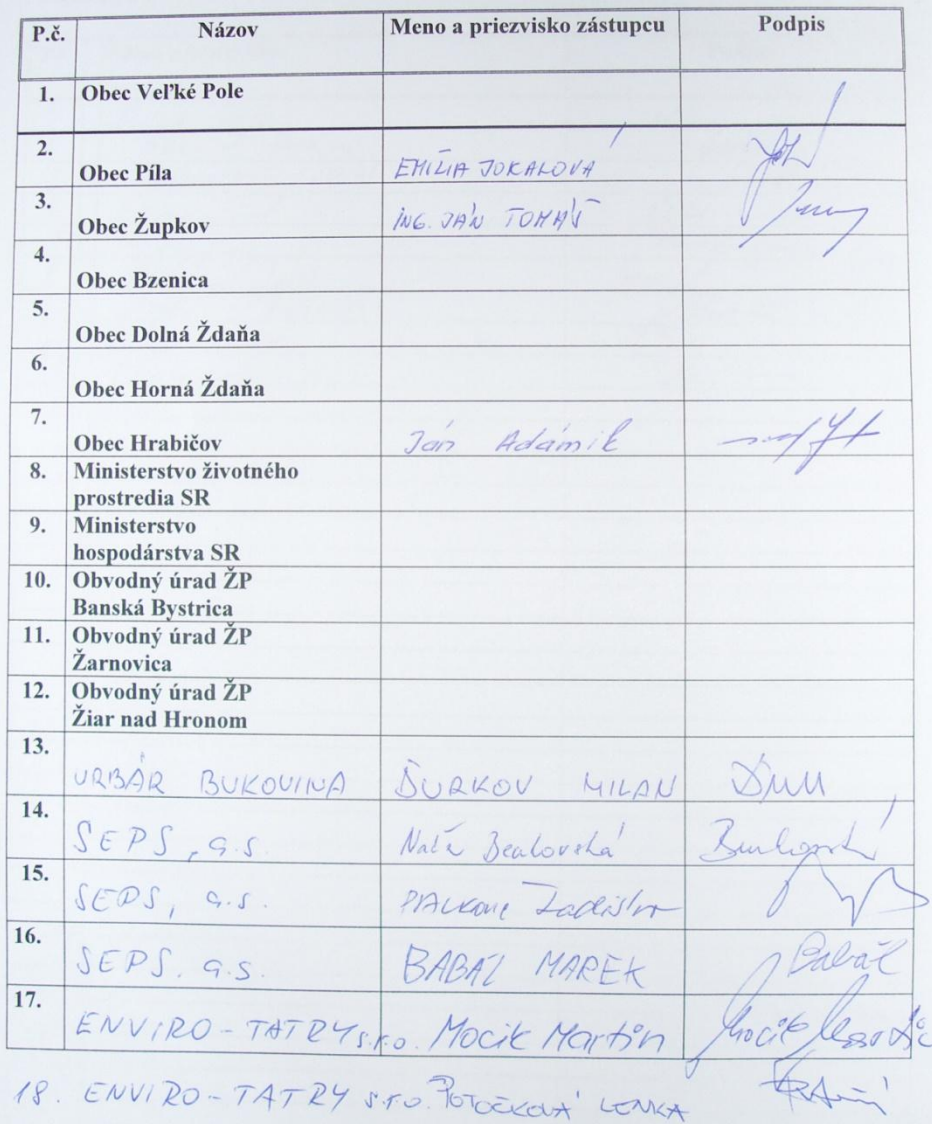 P.č. Názov Meno a priezvisko zástupcu Podpis
1. Obec Veľké Pole
2.
Obec Píla EMÍLIA JOKALOVÁ
3.
Obec Župkov ING. JÁN TOMÁŠ
4.
Obec Bzenica
5.
Obec Dolná Ždaňa
6.
Obec Horná Ždaňa
7.
Obec Hrabičov Ján Adámik
8. Ministerstvo životného
prostredia SR
9. Ministerstvo
hospodárstva SR
10. Obvodný úrad ŽP
Banská Bystrica
11. Obvodný úrad ŽP
Žarnovica
12. Obvodný úrad ŽP
Žiar nad Hronom
13.
URBÁR BUKOVINA ĎURKOV MILAN
14.
SEPS, a.s.
15.
SEPS, a.s.
16.
SEPS, a.s. BABÁĽ MAREK
17.
ENVIRO-TATRY s.r.o. Mocik Martin
18. ENVIRO-TATRY s.r.o. POTOČKOVÁ LENKA